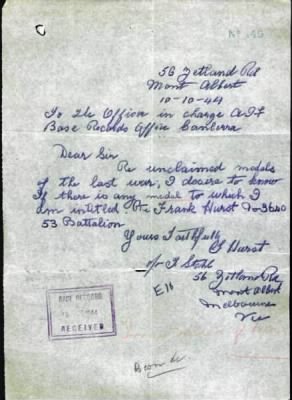 56 Zetland Rd
Mont Albert
10-10-44
To The Officer in charge AIF
Base Records Office Canberra
Dear Sir
Re unclaimed medals
of the last war, I desire to know
if there is any medal to which I
am intitled Pte Frank Hurst No 3640
53 Battalion
Yours Faithfully
F Hurst
c/o F Stahl
56 Zetland Rd
Mont Albert
Melbourne
Vic
E16
BASE RECORDS
1944
RECEIVED